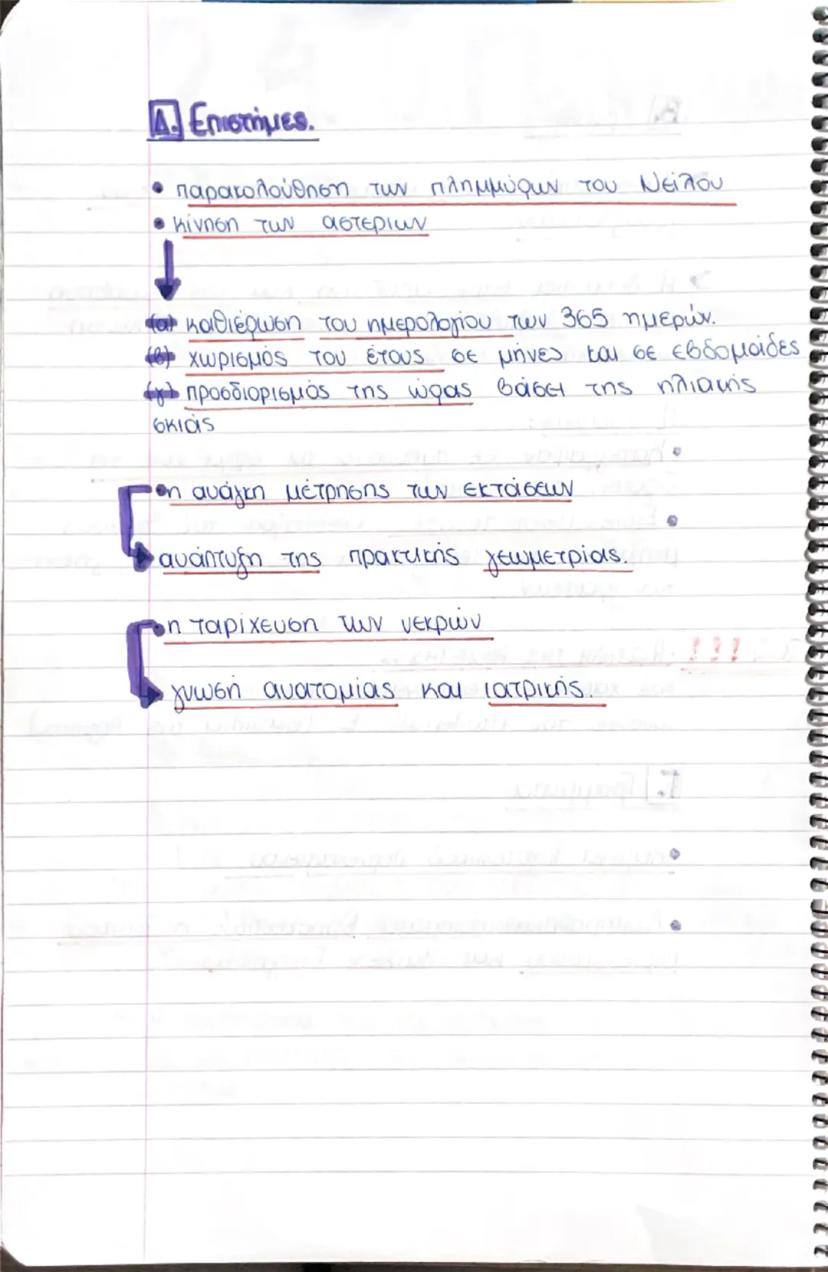 Δ. Επιστήμες.
• παρακολούθηση των πλημμύρων του Νείλου
• κίνηση των αστεριων
(α) καθιέρωση του ημερολογίου των 365 ημερών.
(β) χωρισμός του έτους σε μήνες και σε εβδομάδες
(γ) προσδιορισμός της ώρας βάσει της ηλιακής
σκιάς
• η ανάγκη μέτρησης των εκτάσεων
ανάπτυξη της πρακτικής γεωμετρίας.
• η ταρίχευση των νεκρών
γνωση ανατομίας και ιατρικής.